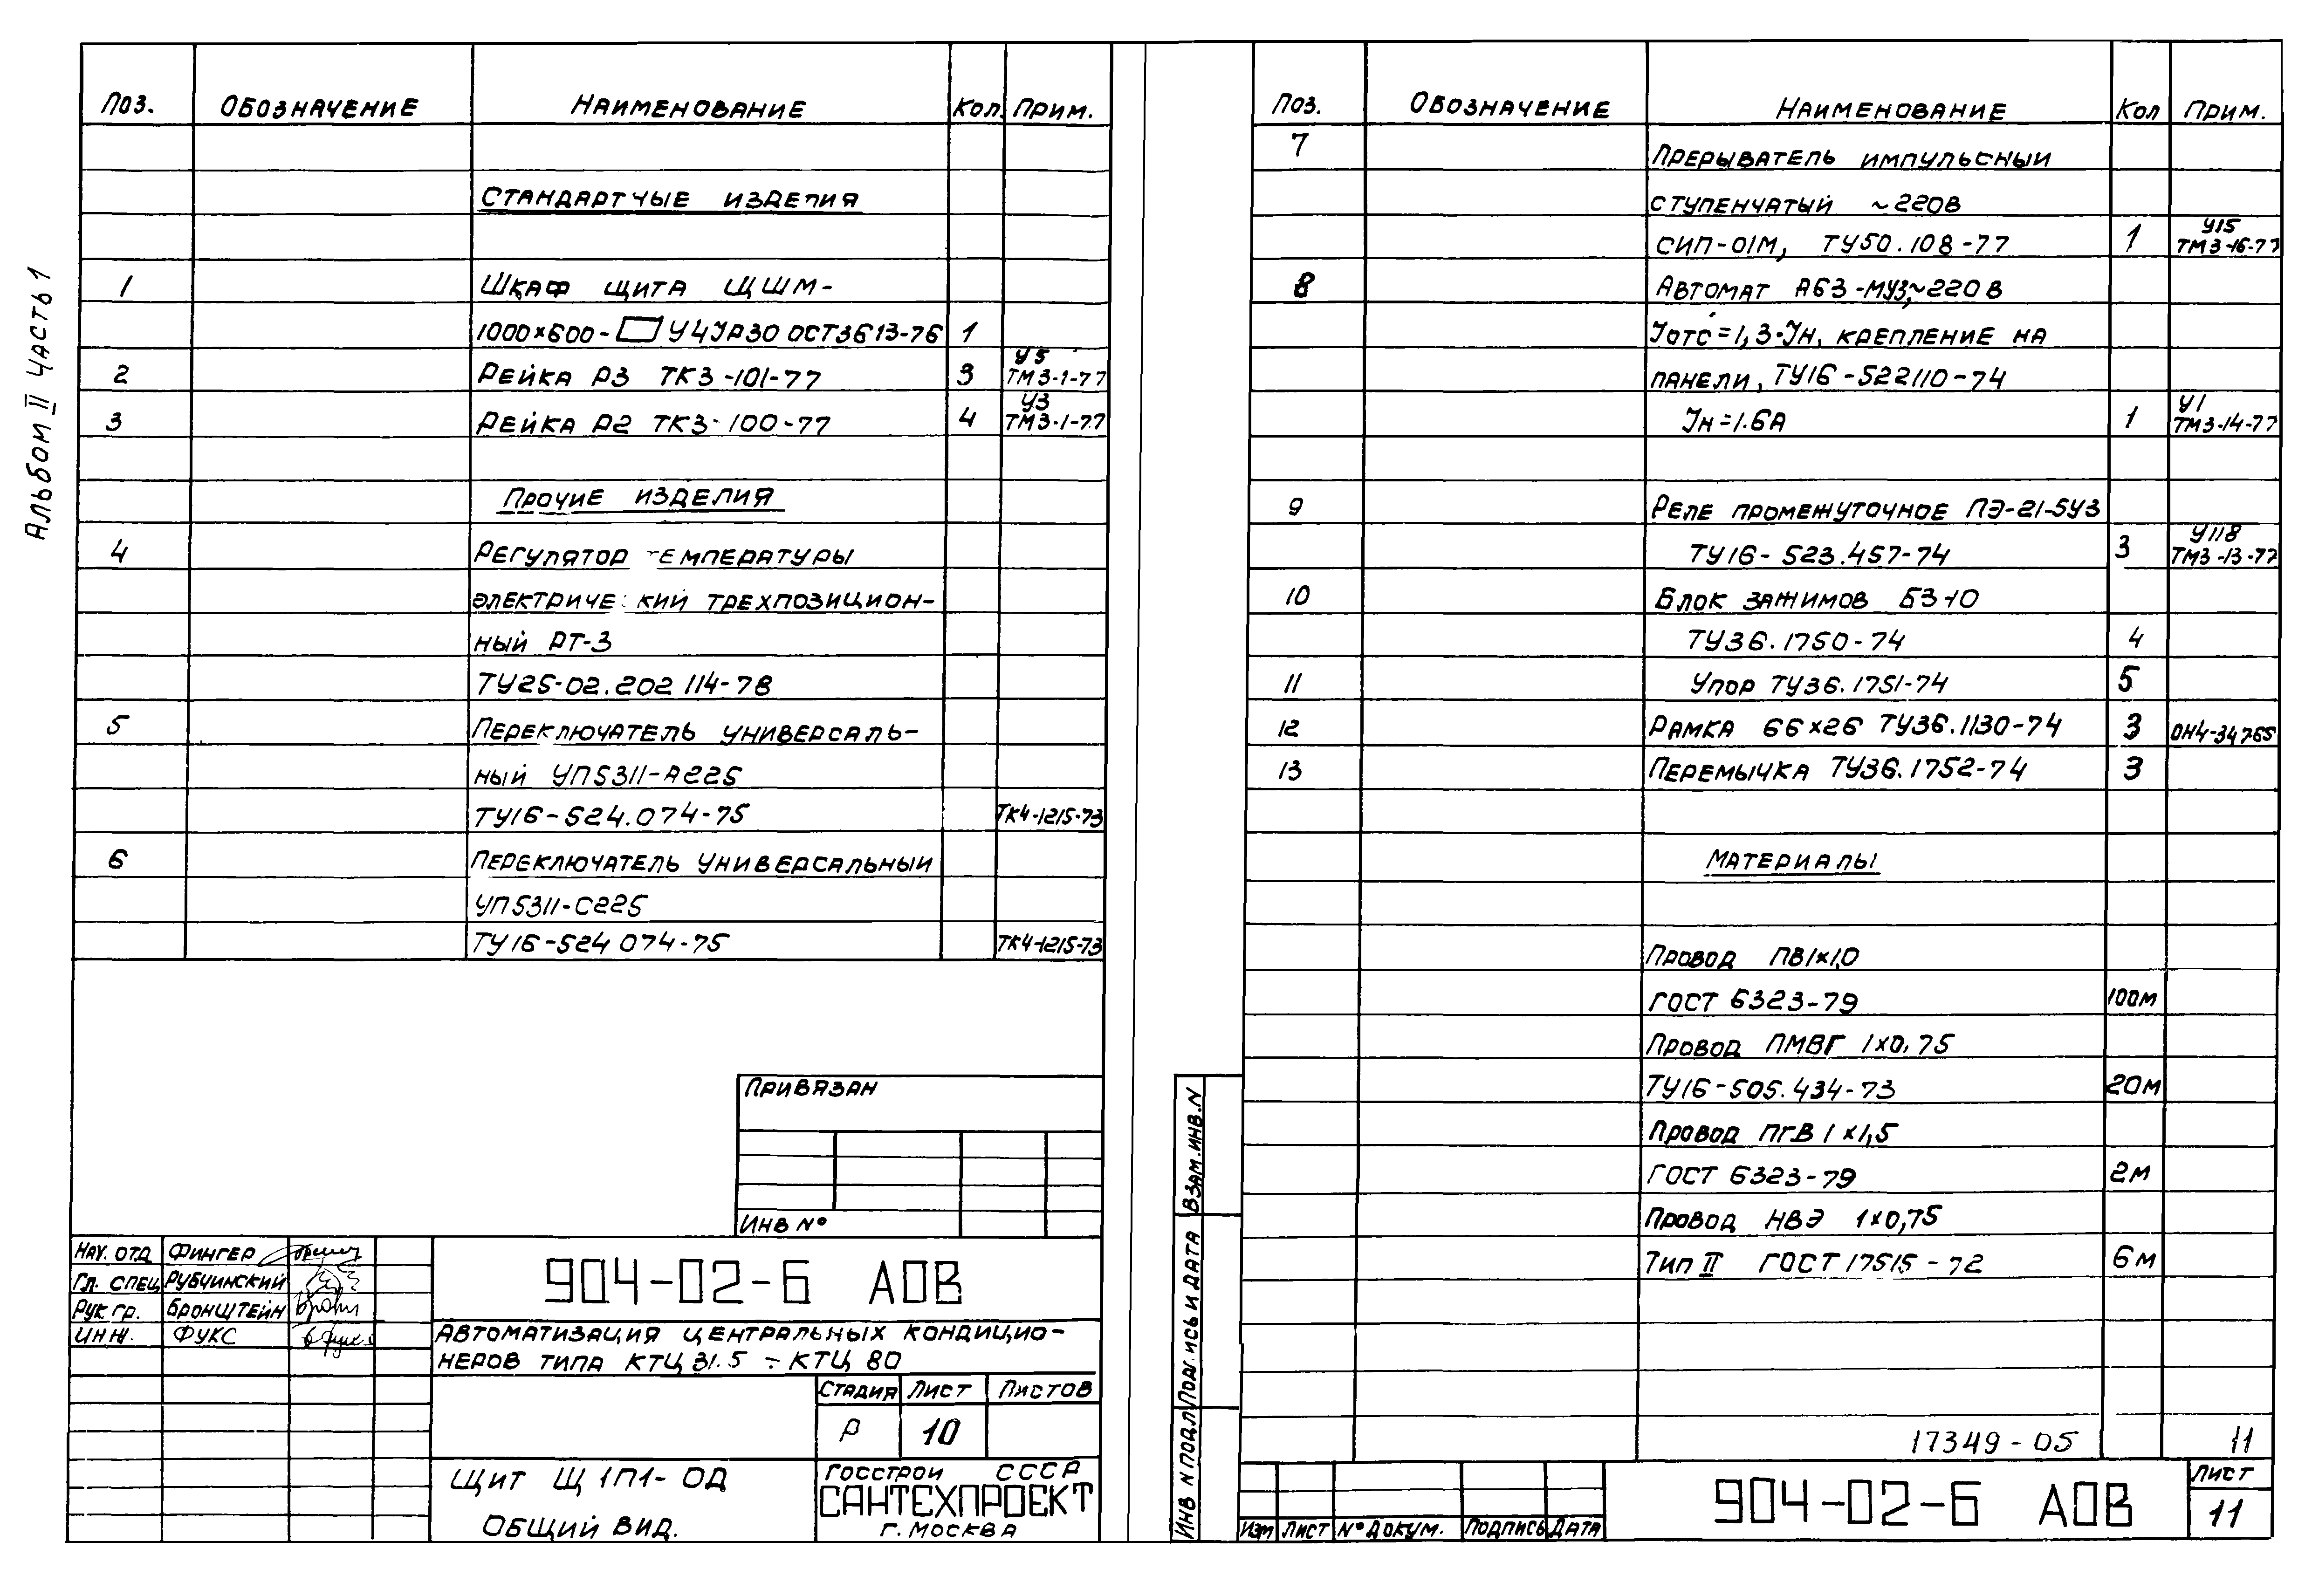 Альбом II Часть 1
Поз. Обозначение Наименование Кол. Прим.
Стандартные изделия
1 Шкаф щита ЩШМ-
1000×600- У4УР30 ОСТ3613-76 1
2 Рейка Р3 ТК3-101-77 3 У5 ТМ3-1-77
3 Рейка Р2 ТК3-100-77 4 У3 ТМ3-1-77
Прочие изделия
4 Регулятор температуры
электрический трехпозицион-
ный РТ-3
ТУ25-02.202 114-78
5 Переключатель универсаль-
ный УП5311-А225
ТУ16-524.074-75 ТК4-1215-73
6 Переключатель универсальный
УП5311-С225
ТУ16-524 074-75 ТК4-1215-73
Привязан
Инв №
Нач. отд Фингер
Гл. спец Рубчинский
Рук гр. Бронштейн
Инж. Фукс
904-02-6 АОВ
Автоматизация центральных кондицио-
неров типа КТЦ 31.5 ÷ КТЦ 80
Стадия Лист Листов
Р 10
Щит Щ 1П1-ОД
Общий вид.
Госстрой СССР
САНТЕХПРОЕКТ
г. Москва
Поз. Обозначение Наименование Кол Прим.
7 Прерыватель импульсный
ступенчатый ~220В
СИП-01М, ТУ50.108-77 1 У15 ТМ3-16-77
8 Автомат А63-МУ3,~220В
Jотс=1,3·Jн, крепление на
панели, ТУ16-522110-74
Jн=1.6А 1 У1 ТМ3-14-77
9 Реле промежуточное ПЭ-21-5У3
ТУ16-523.457-74 3 У118 ТМ3-13-77
10 Блок зажимов БЗ-10
ТУ36.1750-74 4
11 Упор ТУ36.1751-74 5
12 Рамка 66×26 ТУ36.1130-74 3 ОН4-34765
13 Перемычка ТУ36.1752-74 3
Материалы
Провод ПВ1×1,0
ГОСТ 6323-79 100м
Провод ПМВГ 1×0,75
ТУ16-505.434-73 20м
Провод ПГВ 1×1,5
ГОСТ 6323-79 2м
Провод НВЭ 1×0,75
Тип II ГОСТ 17515-72 6м
17349-05 11
Взам.инв.N
Подпись и дата
Инв N подл
Изм Лист № докум. Подпись Дата
904-02-6 АОВ
Лист
11